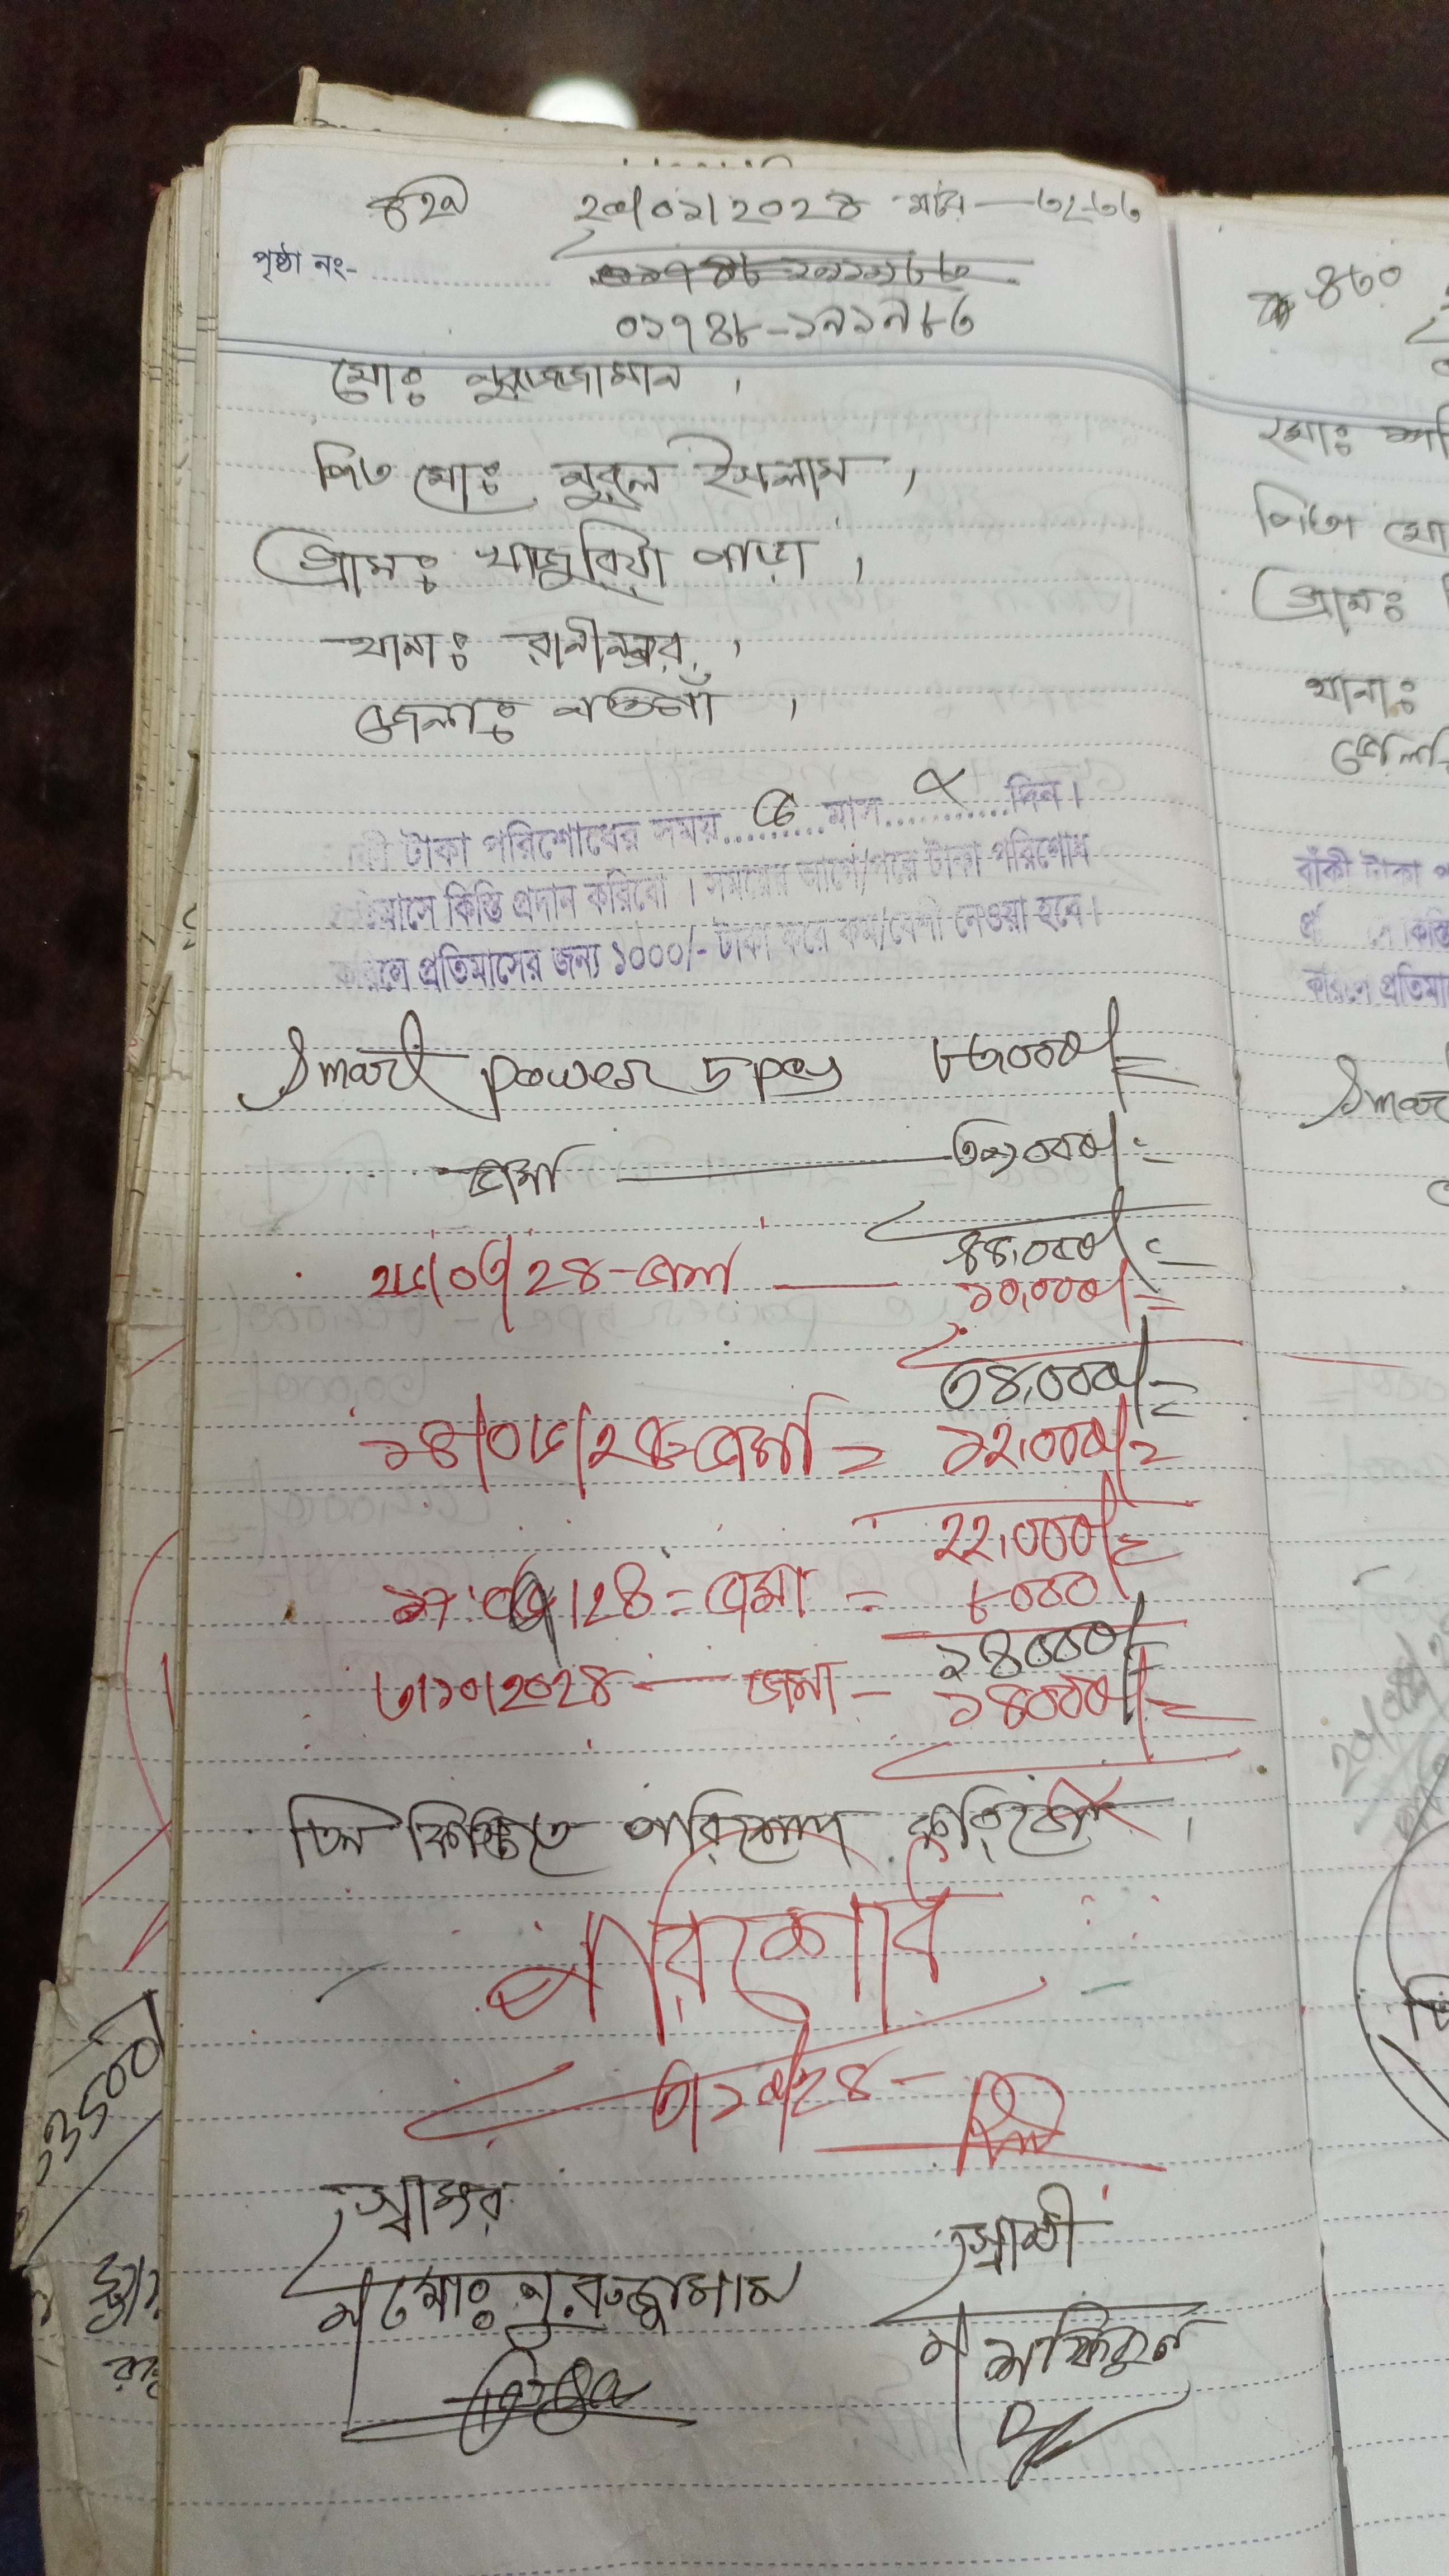 ৪২৯ ২০/০১/২০২৪
পৃষ্ঠা নং-
০১৭৪৮-১৯১৯৮৬
মোঃ নুরুজ্জামান,
পিতা মোঃ নুরুল ইসলাম,
গ্রামঃ খাজুরিয়া পাড়া,
থানাঃ রানীনগর,
জেলাঃ নওগাঁ,
টাকা পরিশোধের সময়..........মাস............দিন।
কিস্তি প্রদান করিবো। সময়ের আগে/পরে টাকা পরিশোধ
করিলে প্রতিমাসের জন্য ১০০০/- টাকা করে কম/বেশী নেওয়া হবে।
Smart power 5 pcs ৮৩০০০/=
জমা — ৩৯০০০/=
৪৪,০০০/=
২৫/০৩/২৪ - জমা — ১০,০০০/=
৩৪,০০০/=
১৪/০৫/২৪ জমা = ১২,০০০/=
২২,০০০/=
/২৪ = জমা = ৮০০০
১৪০০০/=
৩/১০/২০২৪ — জমা — ১৪০০০/=
তিন কিস্তিতে পরিশোধ
পরিশোধ
৩/১০/২৪
স্বাক্ষর
মোঃ নুরুজ্জামান
স্বাক্ষী
৪৩০
মোঃ
পিতা মো
গ্রামঃ
থানাঃ
জেলা
বাঁকী টাকা
কিস্তি
কারিলে প্রতিমা
Smar